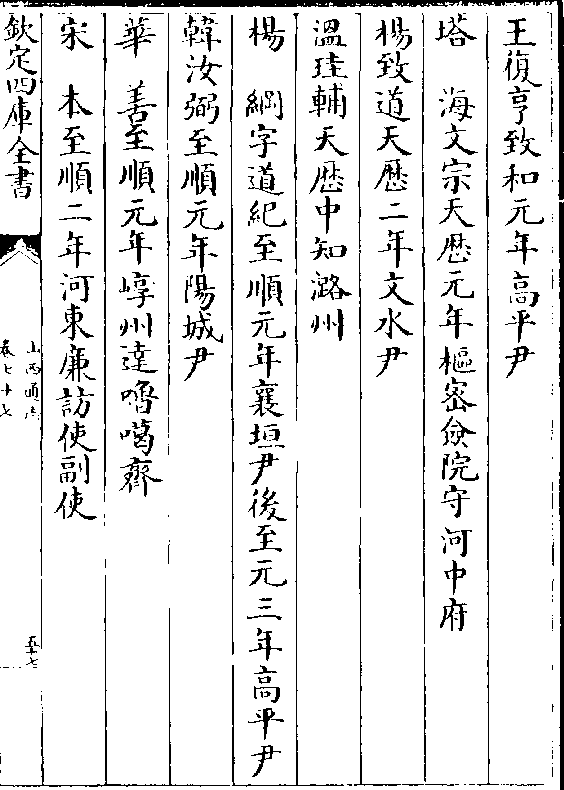 王復亨致和元年高平尹
塔　海文宗天厯元年樞密僉院守河中府
楊致道天厯二年文水尹
溫珪輔天厯中知潞州
楊　綱字道紀至順元年襄垣尹後至元三年高平尹
韓汝弼至順元年陽城尹
華　善至順元年崞州達嚕噶齊
宋　本至順二年河東廉訪使副使
欽定四庫全書
山西通志
卷七十七
五十七